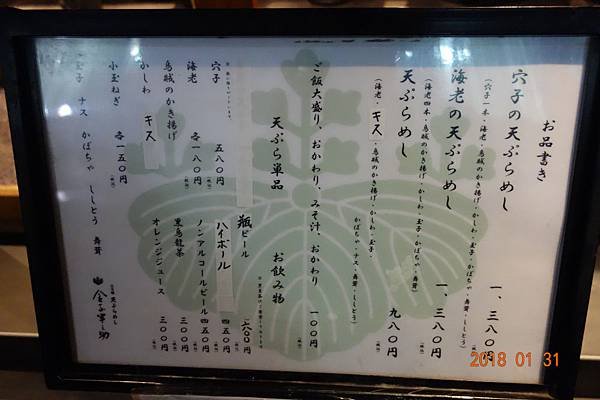 お品書き
穴子の天ぷらめし 一、三八〇円
(穴子一本・海老・烏賊のかき揚げ・かしわ・玉子・かぼちゃ・舞茸・ししとう)
海老の天ぷらめし 一、三八〇円
(海老四本・烏賊のかき揚げ・かしわ・玉子・かぼちゃ・舞茸・ししとう)
天ぷらめし 九八〇円
(海老・キス・烏賊のかき揚げ・かしわ・玉子・
かぼちゃ・ナス・舞茸・ししとう)
ご飯大盛り、おかわり、みそ汁、おかわり 一〇〇円
天ぷら単品
穴子 五八〇円
海老
烏賊のかき揚げ 各一八〇円
かしわ キス
小玉ねぎ 各一五〇円
玉子 ナス かぼちゃ ししとう 舞茸
お飲み物
瓶ビール 六〇〇円
ハイボール 四五〇円
ノンアルコールビール 四五〇円
黒烏龍茶 三〇〇円
オレンジジュース 三〇〇円
天ぷらめし
金子半之助
2018 01 31